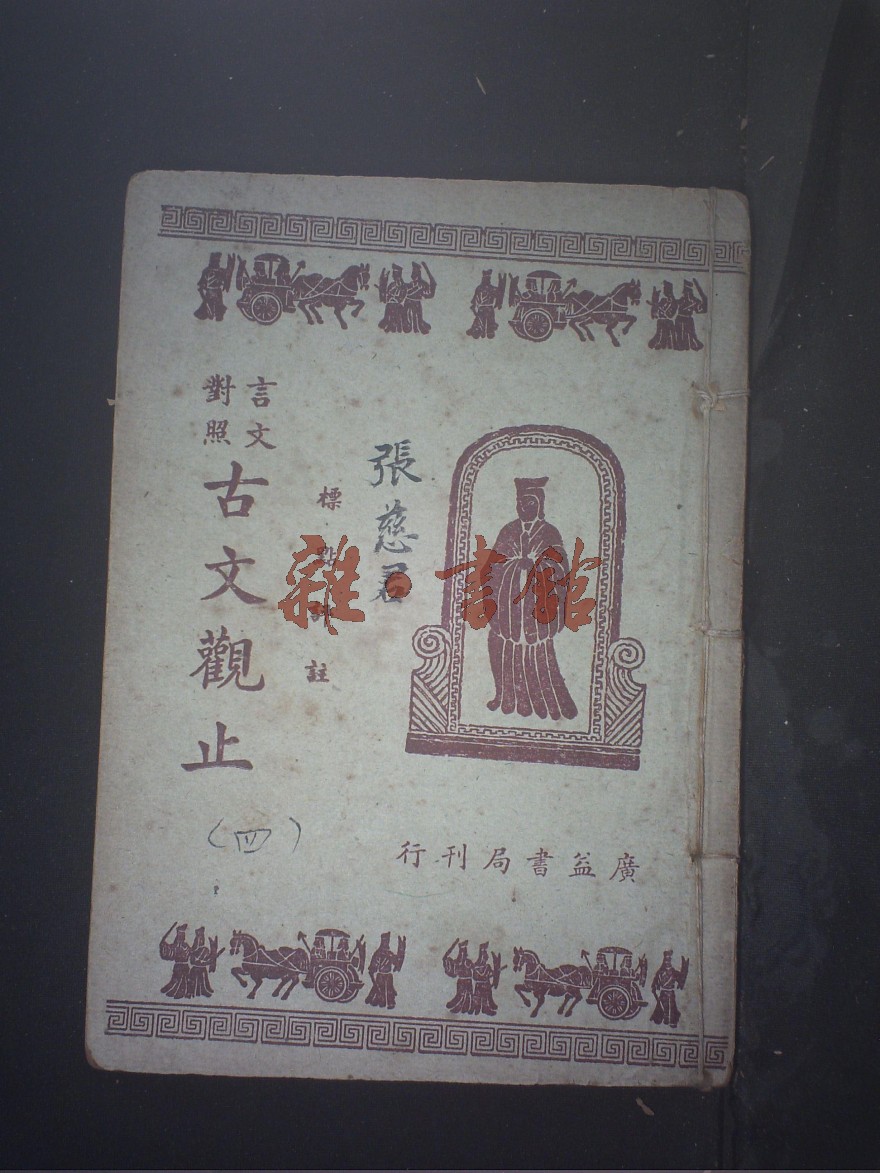 言文
對照
古文觀止
標點評註
張慈君
(四)
廣益書局刊行
雜·書館